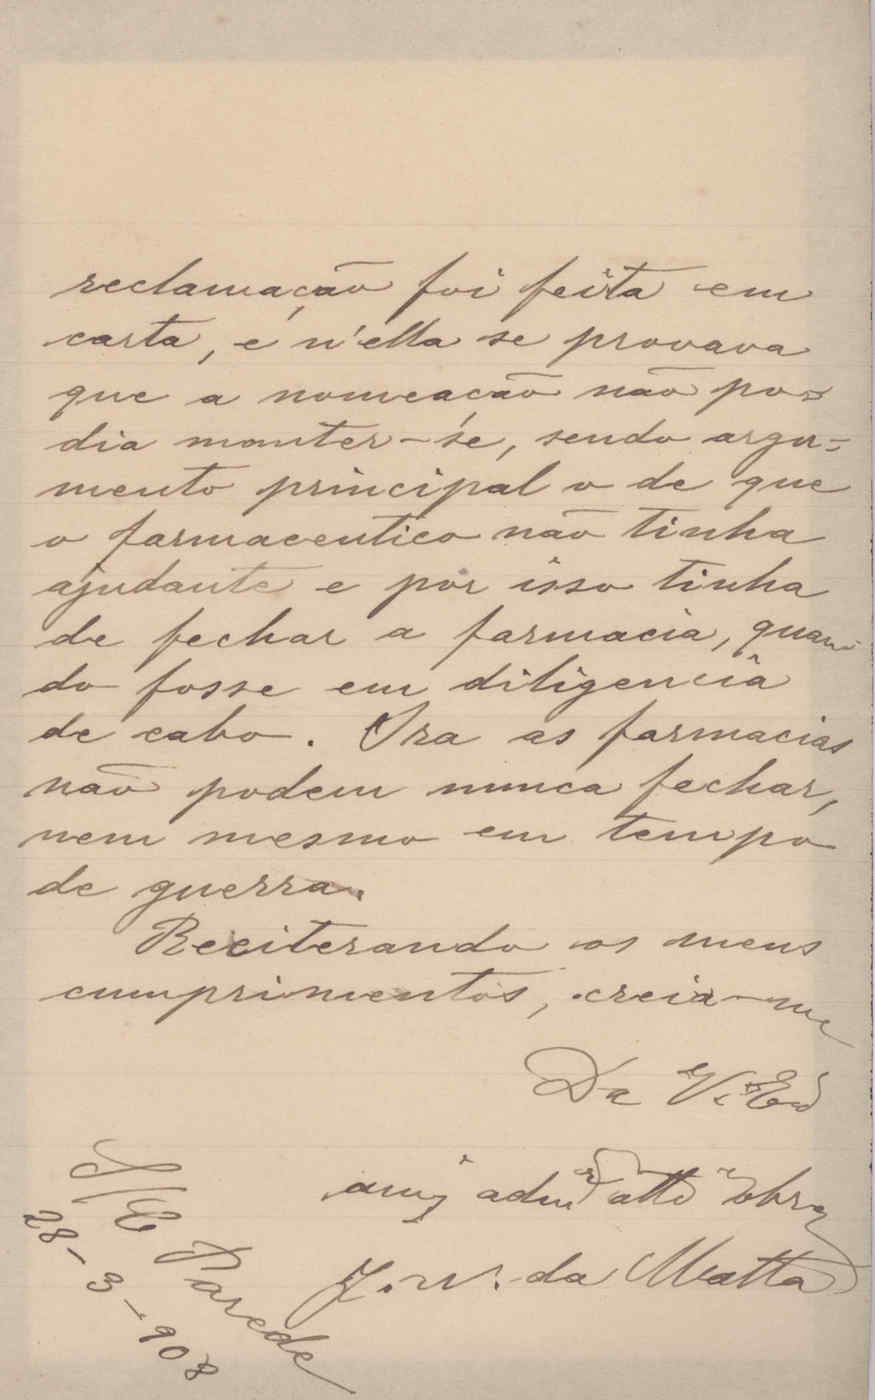 reclamação foi feita em
carta, e n'ella se provava
que a nomeação não po-
dia manter-se, sendo argu-
mento principal o de que
o farmaceutico não tinha
ajudante e por isso tinha
de fechar a farmacia, quan-
do fosse em diligencia
de cabo. Ora as farmacias
não podem nunca fechar,
nem mesmo em tempo
de guerra.
Reeiterando os meus
cumprimentos, creia-me
Da V. Exª
amº admºr attº obrº
J. N. da Matta
S/C Parede
28-3-908